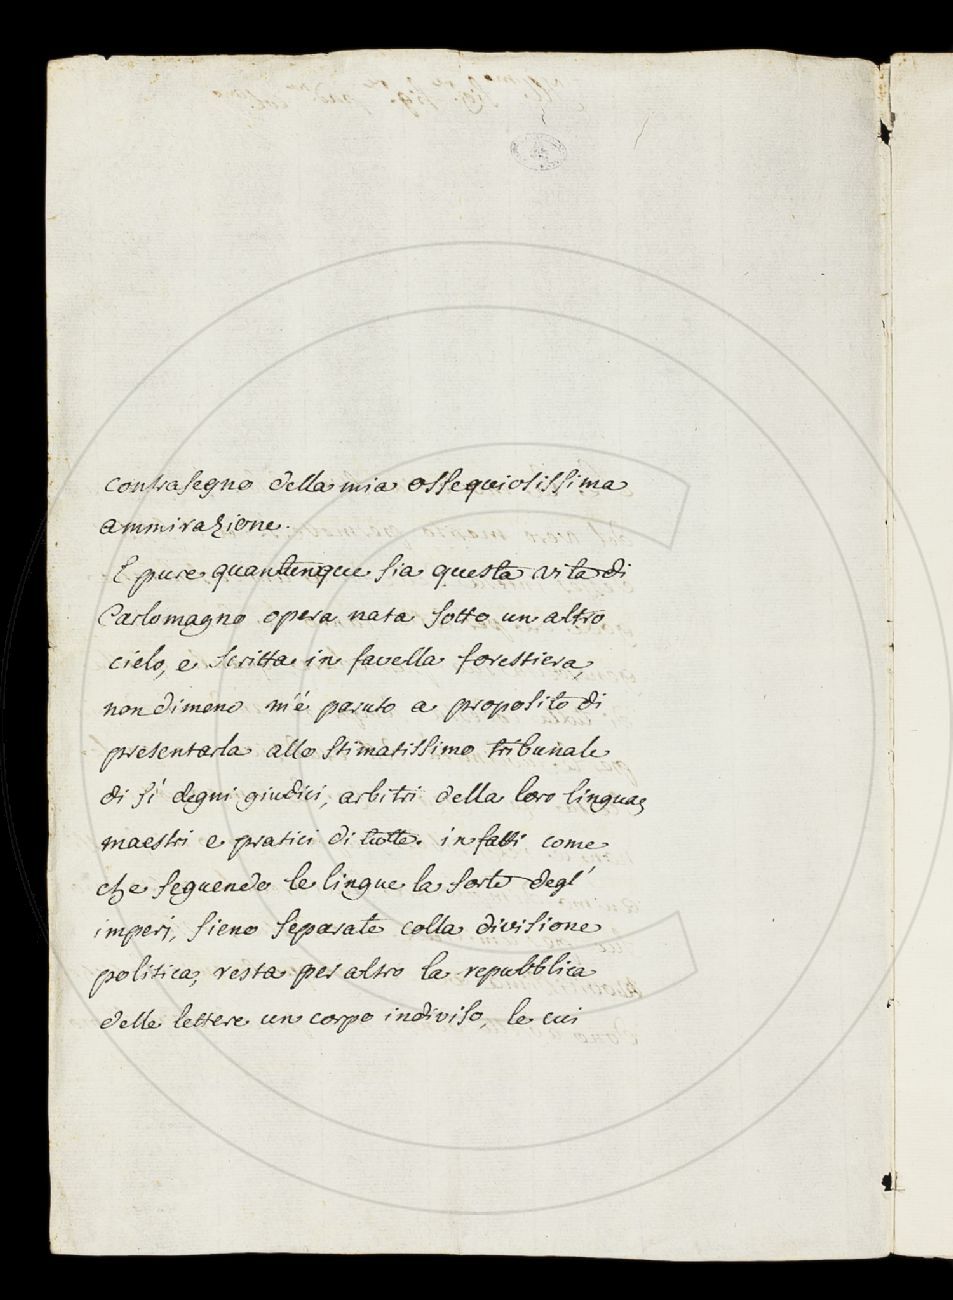 contrasegno della mia ossequiosissima
ammirazione.
E pure quantunque sia questa vita di
Carlomagno opera nata sotto un altro
cielo, e scritta in favella forestiera,
nondimeno m'é paruto a proposito di
presentarla allo stimatissimo tribunale
di sí degni giudici, arbitri della loro lingua,
maestri e pratici di tutte. in fatti come
che seguendo le lingue la sorte degl'
imperj, sieno separate colla divisione
politica, resta per altro la repubblica
delle lettere un corpo indiviso, le cui